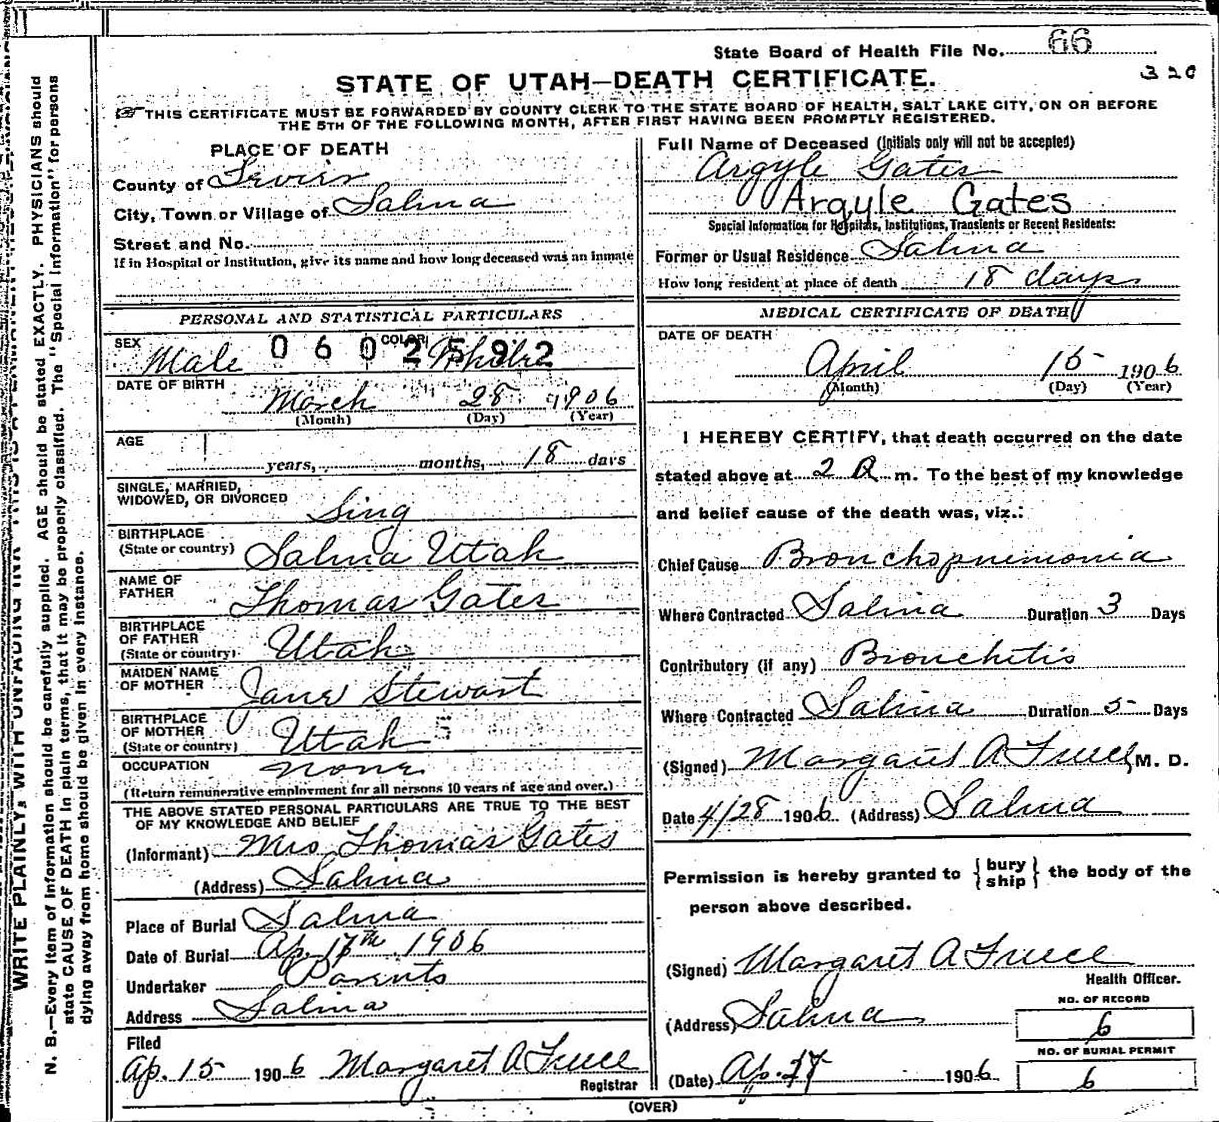 State Board of Health File No. 66
320
STATE OF UTAH—DEATH CERTIFICATE.
THIS CERTIFICATE MUST BE FORWARDED BY COUNTY CLERK TO THE STATE BOARD OF HEALTH, SALT LAKE CITY, ON OR BEFORE
THE 5TH OF THE FOLLOWING MONTH, AFTER FIRST HAVING BEEN PROMPTLY REGISTERED.
PLACE OF DEATH
County of Sevier
City, Town or Village of Salina
Street and No.
If in Hospital or Institution, give its name and how long deceased was an inmate
Full Name of Deceased (Initials only will not be accepted)
Argyle Gates
Argyle Gates
Special Information for Hospitals, Institutions, Transients or Recent Residents:
Former or Usual Residence Salina
How long resident at place of death 18 days
PERSONAL AND STATISTICAL PARTICULARS
SEX Male COLOR White
0602592
DATE OF BIRTH
March 28 1906
(Month) (Day) (Year)
AGE
years, months, 18 days
SINGLE, MARRIED,
WIDOWED, OR DIVORCED Sing
BIRTHPLACE
(State or country) Salina Utah
NAME OF
FATHER Thomas Gates
BIRTHPLACE
OF FATHER
(State or country) Utah
MAIDEN NAME
OF MOTHER Jane Stewart
BIRTHPLACE
OF MOTHER
(State or country) Utah
OCCUPATION none
(Return remunerative employment for all persons 10 years of age and over.)
THE ABOVE STATED PERSONAL PARTICULARS ARE TRUE TO THE BEST
OF MY KNOWLEDGE AND BELIEF
(Informant) Mrs Thomas Gates
(Address) Salina
Place of Burial Salina
Date of Burial Ap. 17th 1906
Undertaker Parents
Address Salina
Filed
Ap. 15 1906 Margaret A
Registrar
MEDICAL CERTIFICATE OF DEATH
DATE OF DEATH
April 15 1906
(Month) (Day) (Year)
I HEREBY CERTIFY, that death occurred on the date
stated above at 2 a m. To the best of my knowledge
and belief cause of the death was, viz.:
Chief Cause Bronchopnemonia
Where Contracted Salina Duration 3 Days
Contributory (if any) Bronchitis
Where Contracted Salina Duration 5 Days
(Signed) Margaret A M. D.
Date 4/28 1906 (Address) Salina
Permission is hereby granted to {bury
ship} the body of the
person above described.
(Signed) Margaret A
Health Officer.
(Address) Salina
(Date) Ap. 1906
NO. OF RECORD
6
NO. OF BURIAL PERMIT
6
(OVER)
N. B.—Every item of information should be carefully supplied. AGE should be stated EXACTLY. PHYSICIANS should
state CAUSE OF DEATH in plain terms, that it may be properly classified. The "Special Information" for persons
dying away from home should be given in every instance.
WRITE PLAINLY, WITH UNFADING INK